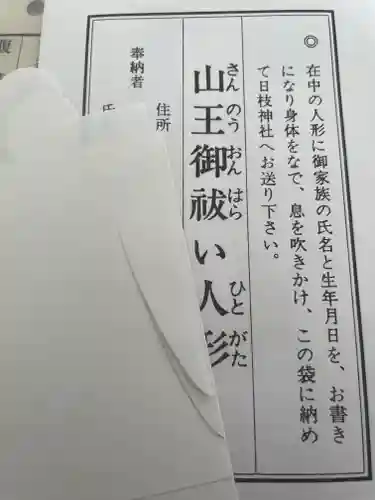 ◎
在中の人形に御家族の氏名と生年月日を、お書き
になり身体をなで、息を吹きかけ、この袋に納め
て日枝神社へお送り下さい。
さんのうおんはらひとがた
山王御祓い人形
住所
奉納者
氏